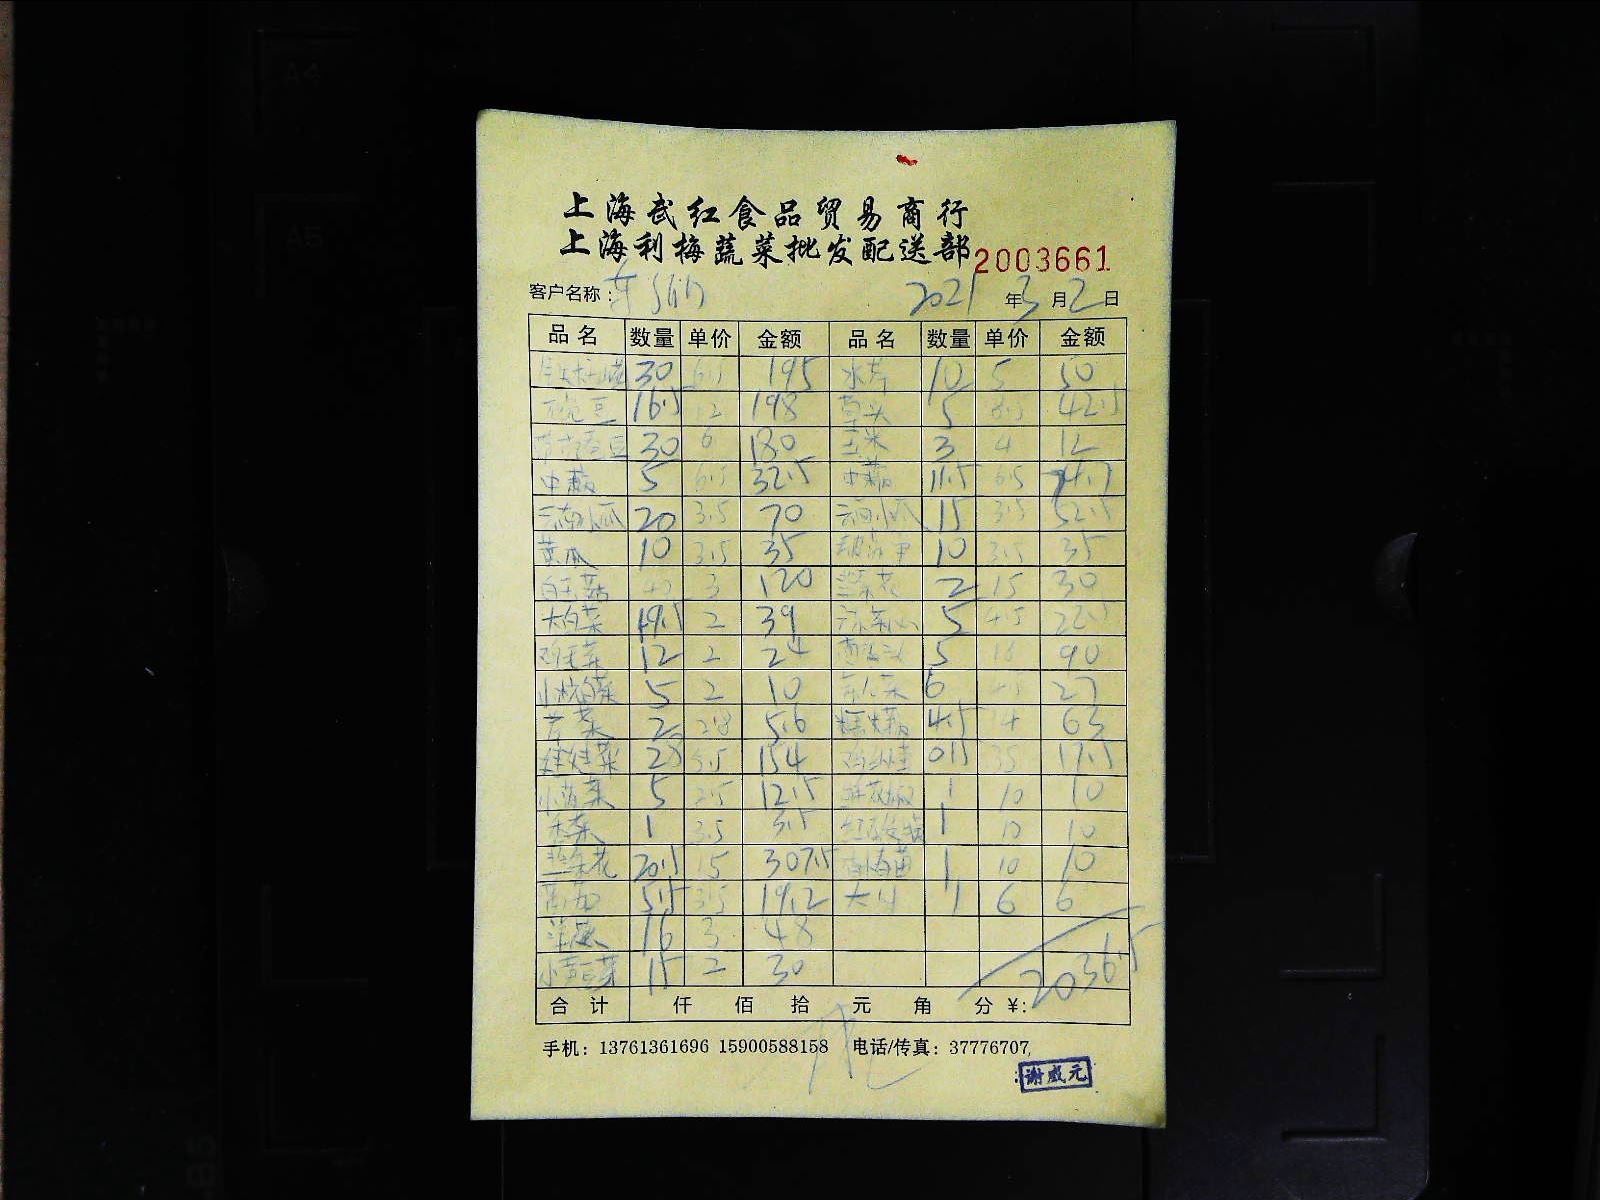 上海武红食品贸易商行
上海利梅蔬菜批发配送部 2003661
客户名称： 2021 年 3 月 2 日
品名 数量 单价 金额 品名 数量 单价 金额
30 6.5 195 水芹 10 5 50
豌豆 16.5 12 198 草头 5 8.5 42.5
30 6 180 玉米 3 4 12
中菇 5 6.5 32.5 中菇 11.5 6.5 74.7
云南小瓜 20 3.5 70 云南小瓜 15 3.5 52.5
黄瓜 10 3.5 35 10 3.5 35
白玉菇 40 3 120 兰花 2 15 30
大白菜 19.5 2 39 广东菜心 5 4.5 22.5
鸡毛菜 12 2 24 5 18 90
小杭白菜 5 2 10 6 4.5 27
芹菜 2 2.8 5.6 4.5 14 63
娃娃菜 28 5.5 154 0.5 35 17.5
小菠菜 5 2.5 12.5 1 10 10
香菜 1 3.5 3.5 1 10 10
20.5 15 307.5 1 10 10
5.5 3.5 19.2 大 1 6 6
洋葱 16 3 48
小黄豆芽 15 2 30
合计 仟 佰 拾 元 角 分 ￥: 2036.5
手机：13761361696 15900588158 电话/传真：37776707
谢威元